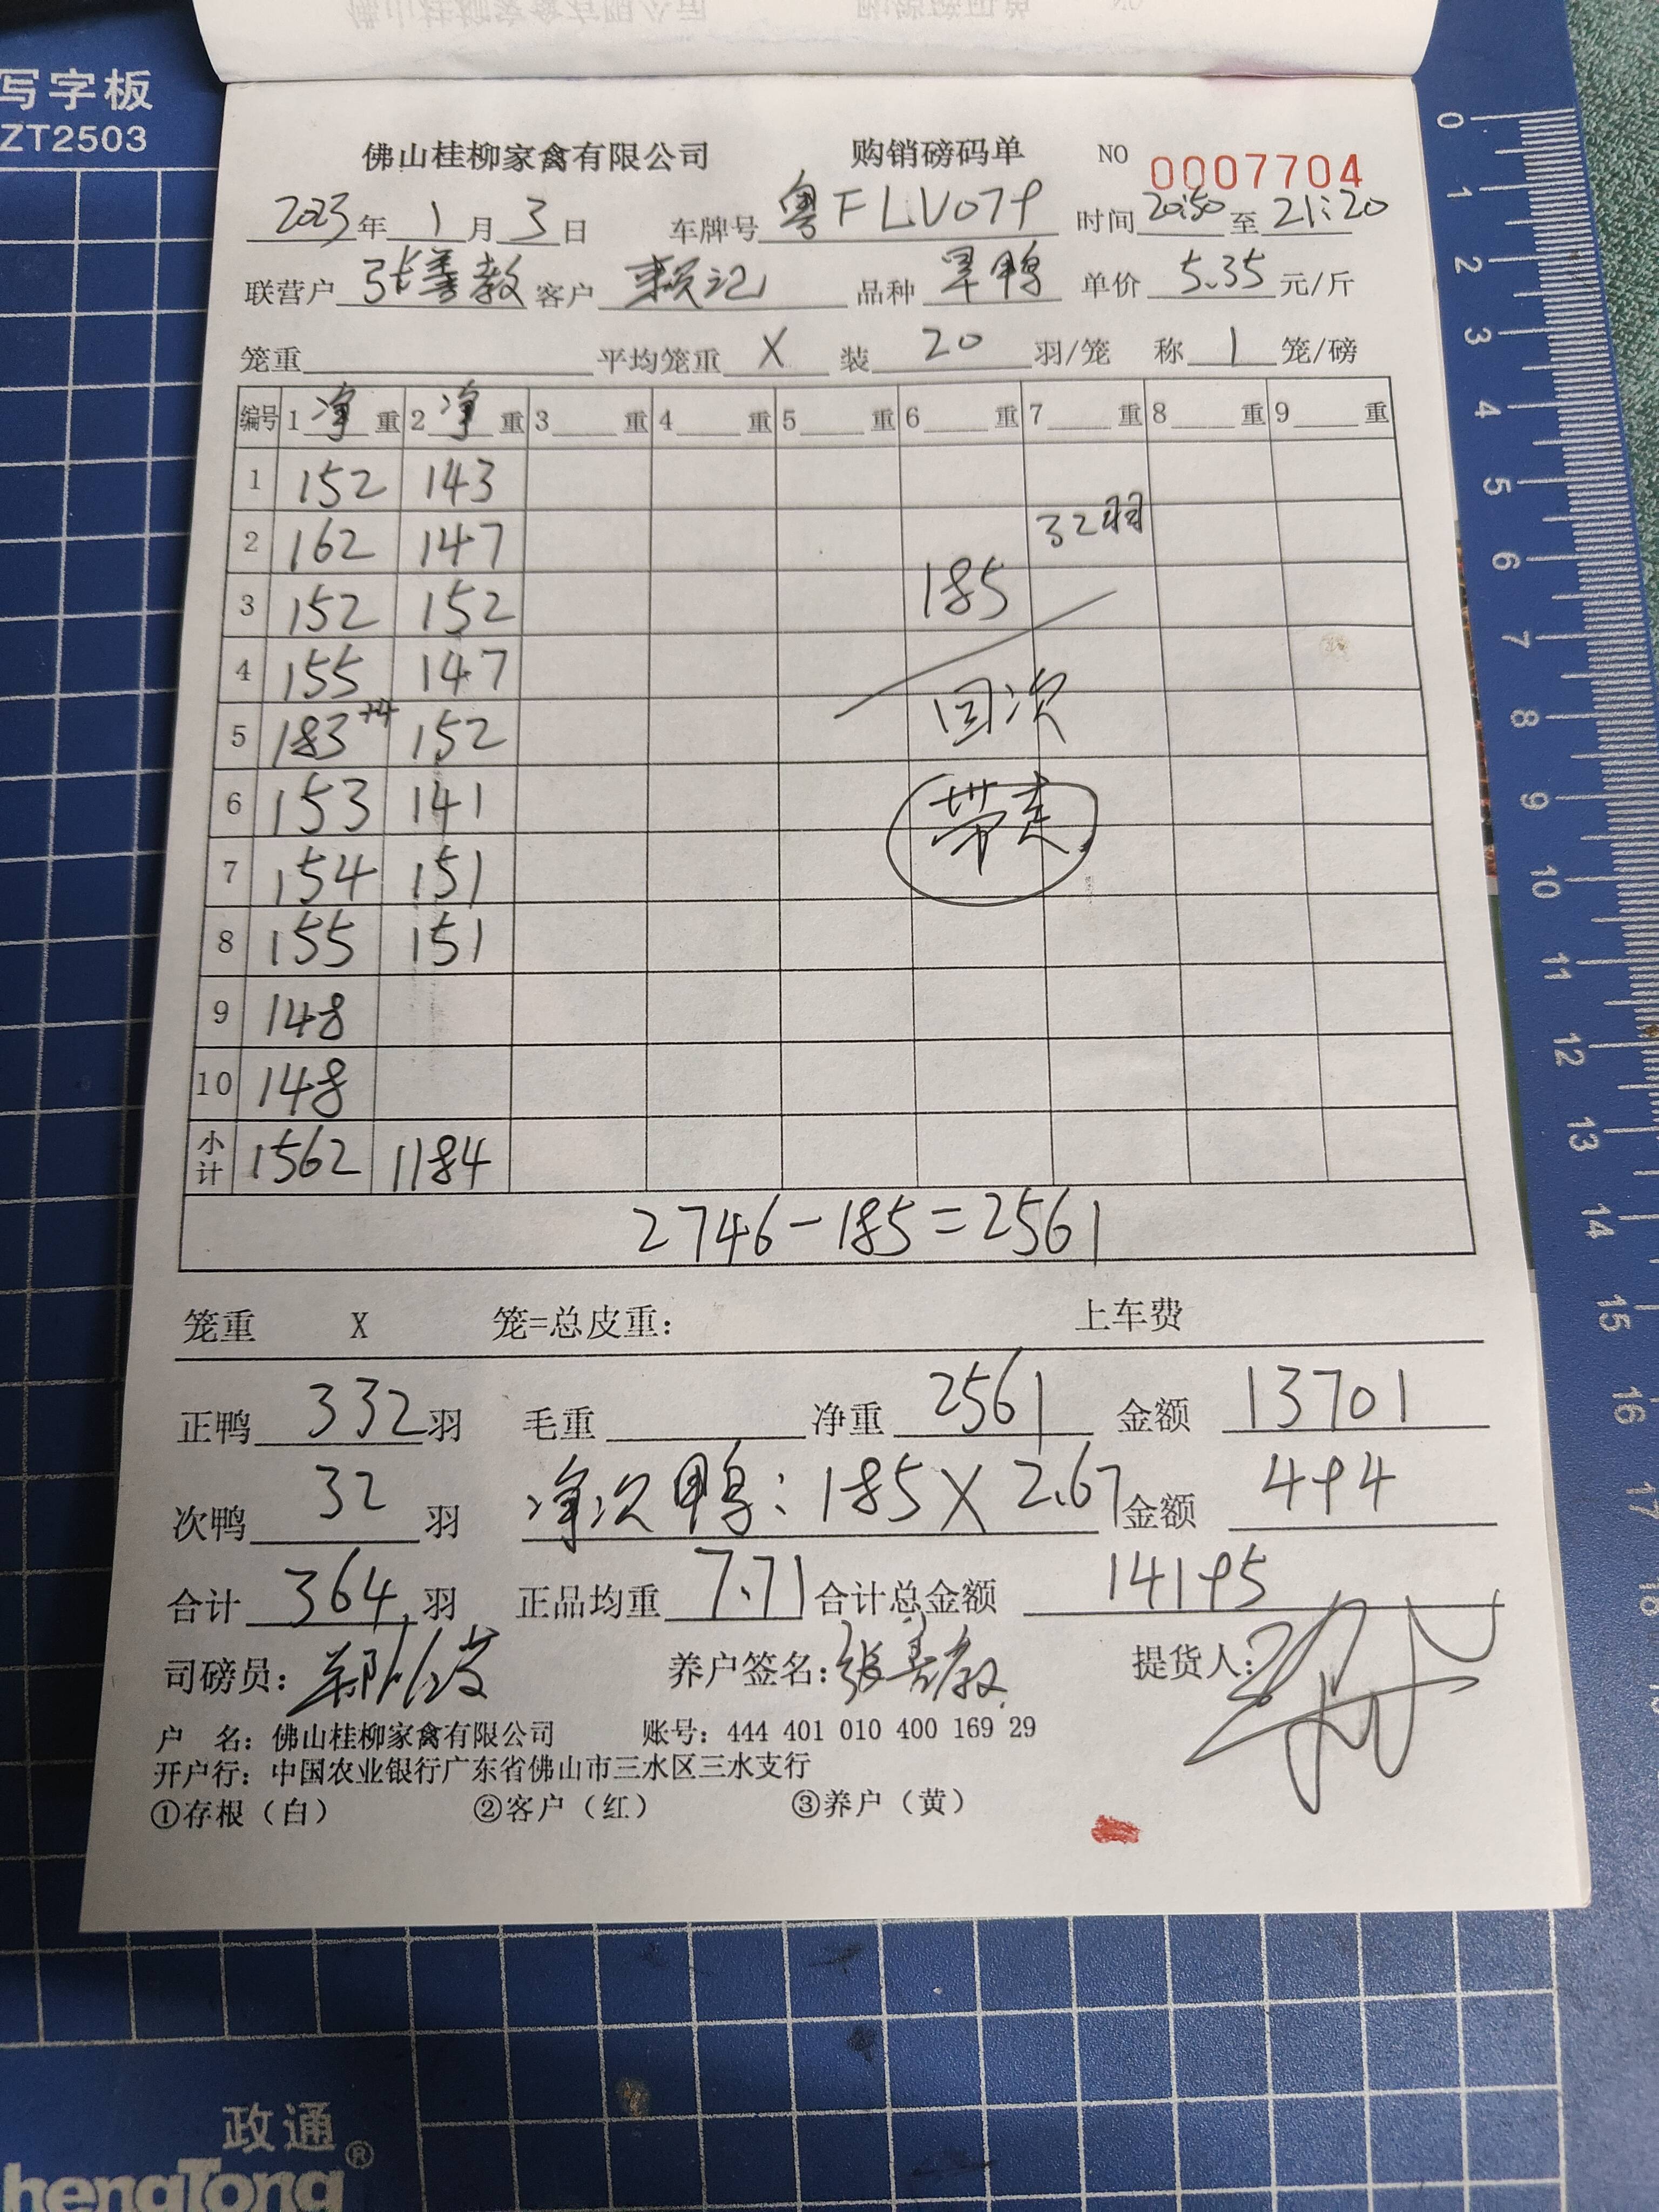 写字板
ZT2503
佛山桂柳家禽有限公司 购销磅码单 NO 0007704
2023年 1月 3日 车牌号 粤FLV079 时间 20:50 至 21:20
联营户 张善教 客户 赖记 品种 旱鸭 单价 5.35 元/斤
笼重 平均笼重 X 装 20 羽/笼 称 1 笼/磅
编号 1 净 重 2 净 重 3 重 4 重 5 重 6 重 7 重 8 重 9 重
1 152 143
2 162 147 32羽
3 152 152 185
4 155 147 回次
5 183+4 152
6 153 141 带走
7 154 151
8 155 151
9 148
10 148
小计 1562 1184
2746-185=2561
笼重 X 笼=总皮重: 上车费
正鸭 332 羽 毛重 净重 2561 金额 13701
次鸭 32 羽 净次鸭:185X2.67 金额 494
合计 364 羽 正品均重 7.71 合计总金额 14195
司磅员: 养户签名:张善教 提货人:
户 名:佛山桂柳家禽有限公司 账号:444 401 010 400 169 29
开户行:中国农业银行广东省佛山市三水区三水支行
①存根(白) ②客户(红) ③养户(黄)
0 1 2 3 4 5 6 7 8 9 10 11 12 13 14 15 16 17 18
政通®
hengTong